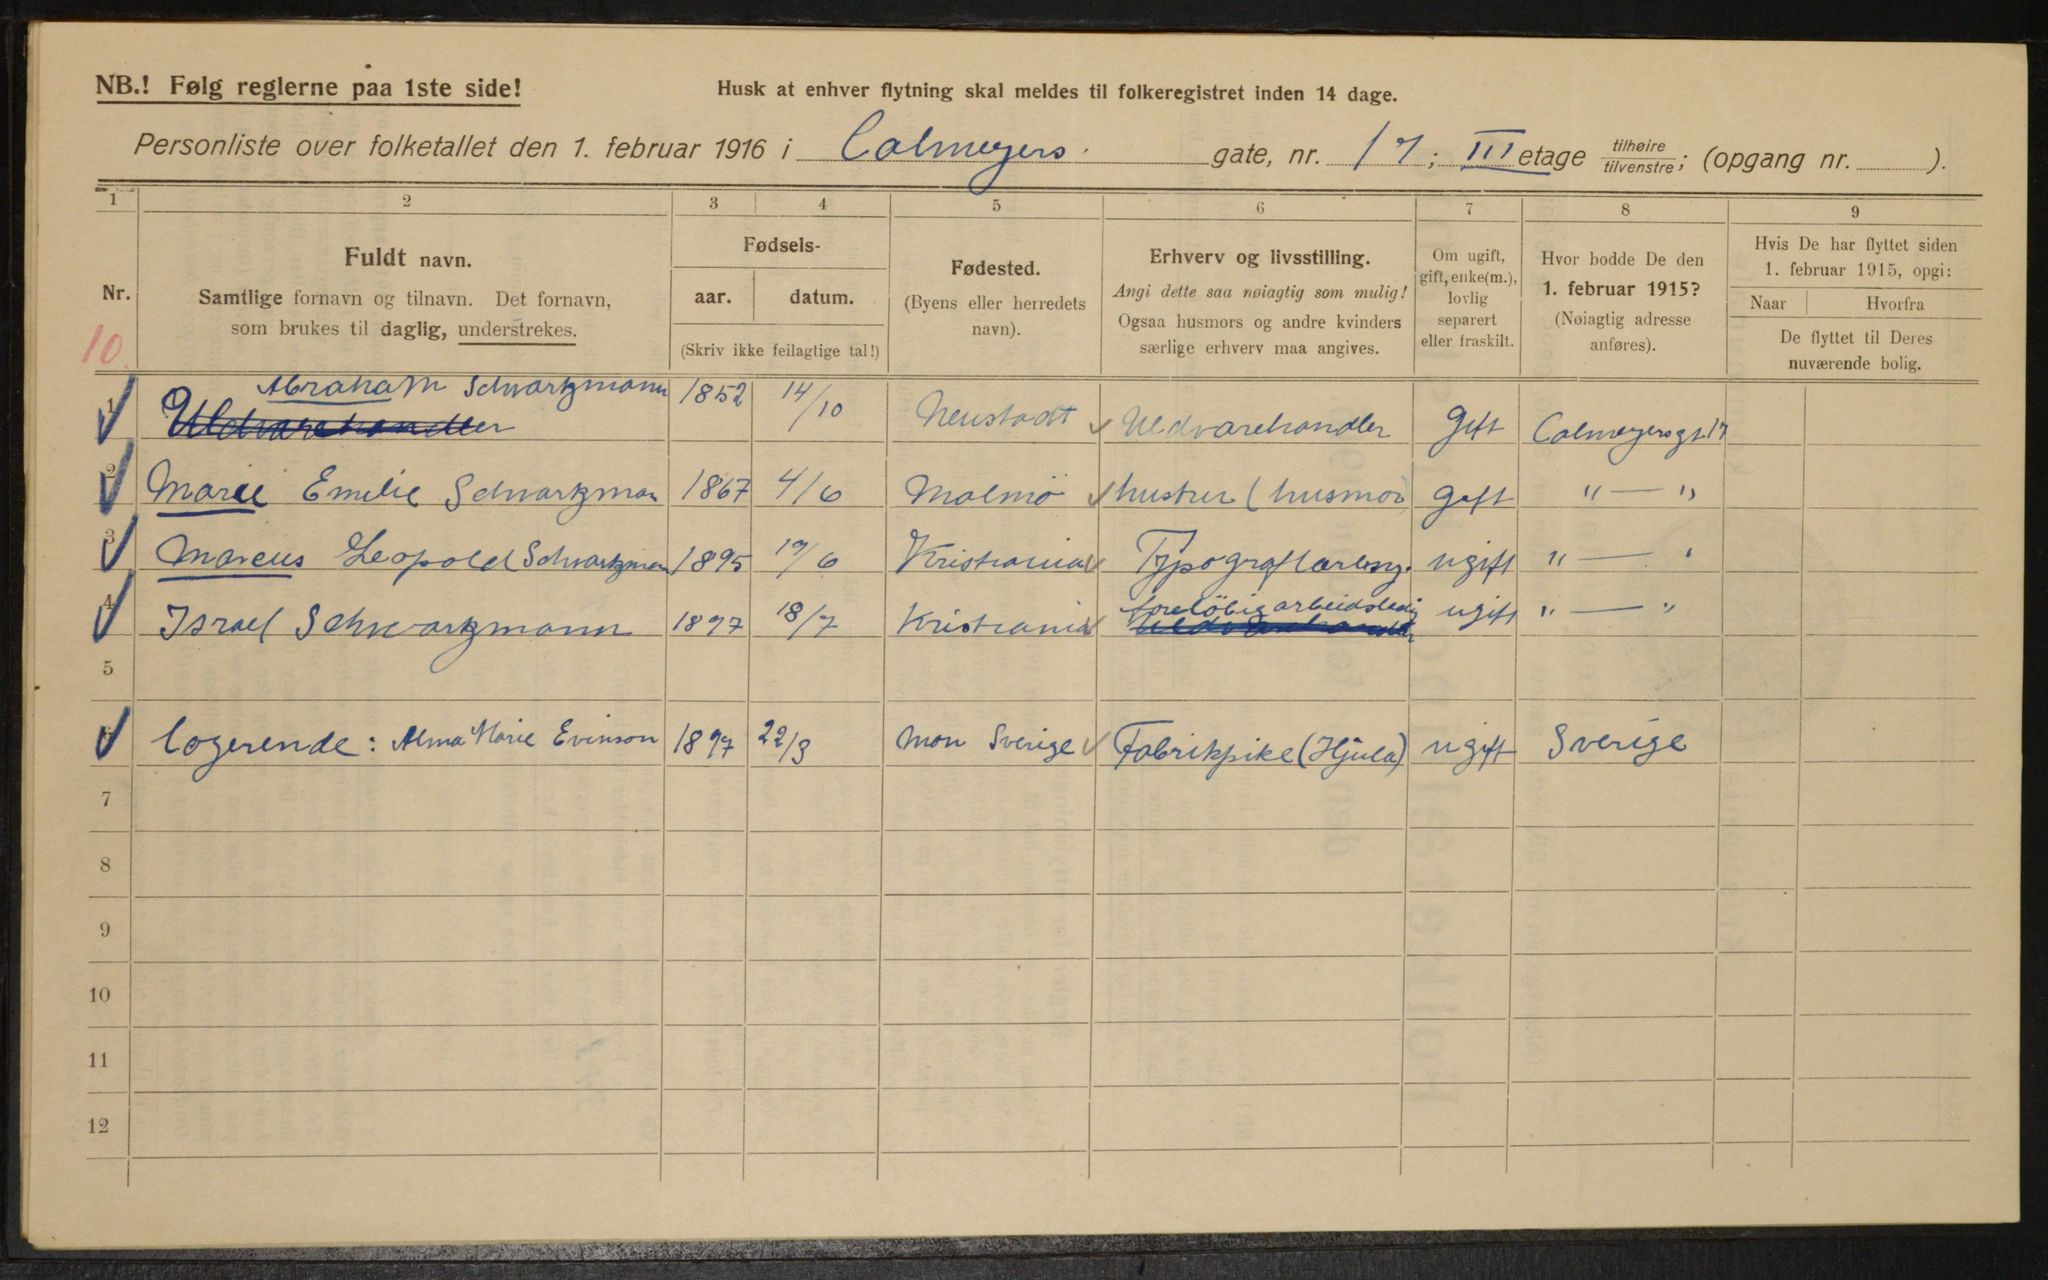 NB.! Følg reglerne paa 1ste side!
Husk at enhver flytning skal meldes til folkeregistret inden 14 dage.
Personliste over folketallet den 1. februar 1916 i Calmeyers gate, nr. 17; III etage tilhøire/tilvenstre; (opgang nr. ).
1 2 3 4 5 6 7 8 9
Nr.
10
Fuldt navn.
Samtlige fornavn og tilnavn. Det fornavn,
som brukes til daglig, understrekes.
Fødsels-
aar. datum.
(Skriv ikke feilagtige tal!)
Fødested.
(Byens eller herredets
navn).
Erhverv og livsstilling.
Angi dette saa nøiagtig som mulig!
Ogsaa husmors og andre kvinders
særlige erhverv maa angives.
Om ugift,
gift, enke(m.),
lovlig
separert
eller fraskilt.
Hvor bodde De den
1. februar 1915?
(Nøiagtig adresse
anføres).
Hvis De har flyttet siden
1. februar 1915, opgi:
Naar Hvorfra
De flyttet til Deres
nuværende bolig.
1 Abraham Schwartzmann 1852 14/10 Neustadt Uldvarehandler gift Calmeyersgt. 17
Uldvarehandler
2 Marie Emilie Schvartzman 1867 4/6 Malmö hustru (husmor) gift " — "
3 Marcus Leopold Schvartzman 1895 19/6 Kristiania Typograflærling. ugift " — "
4 Israel Schwartzmann 1897 18/7 Kristiania foreløbig arbeidsledig ugift " — "
Uldvarehandler
5
6 logerende: Alma Marie Evinson 1897 22/3 Mon Sverige Fabrikpike (Hjula) ugift Sverige
7
8
9
10
11
12